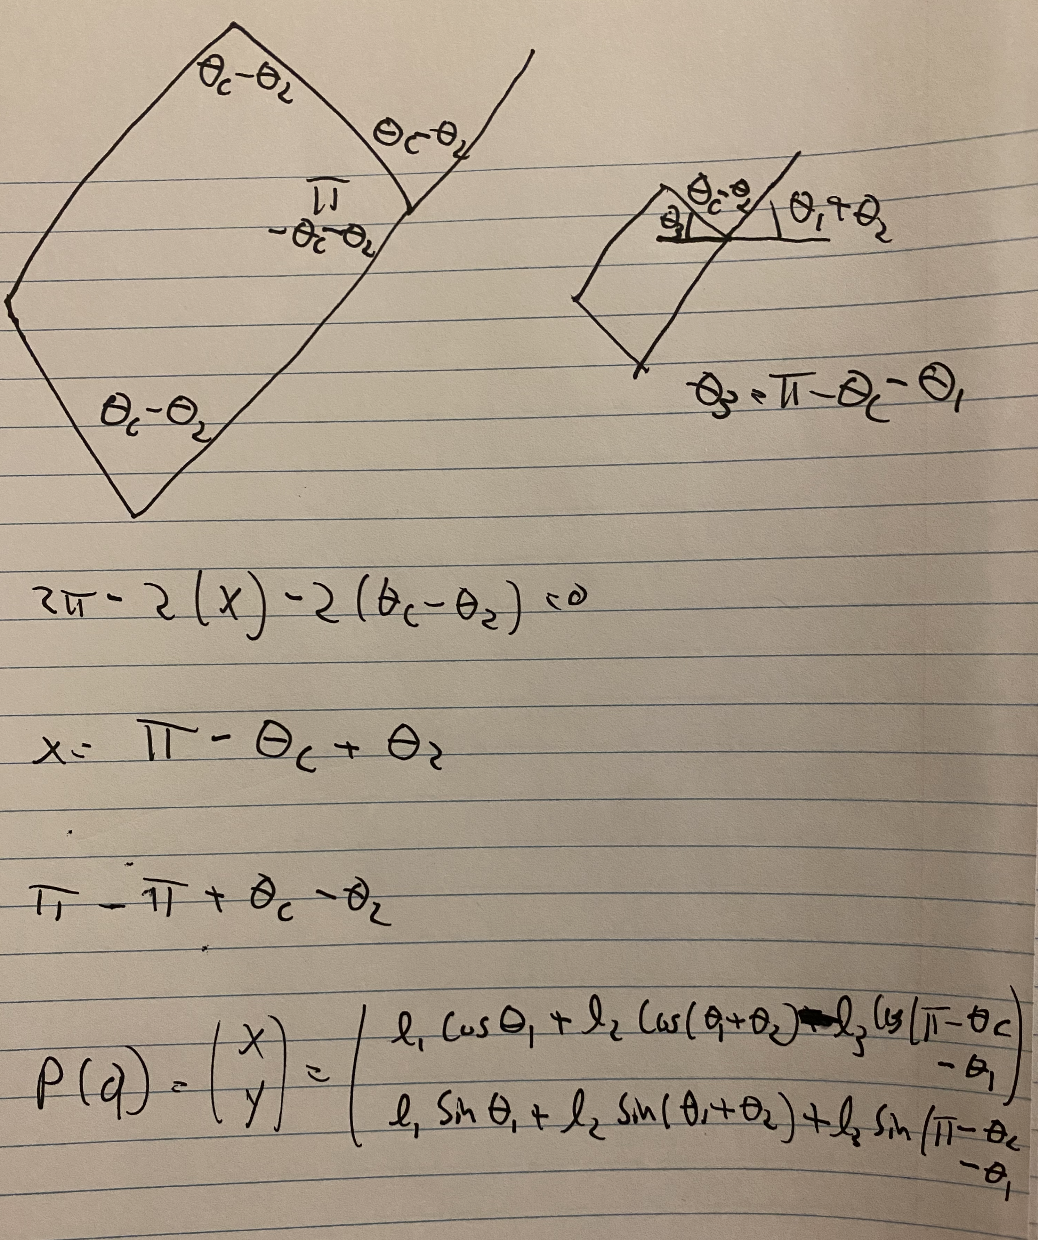 θc-θ2
θc-θ2
π
-θc-θ2
θc-θ2
θc-θ2
θ3
θ1+θ2
θ3=π-θc-θ1
2π-2(x)-2(θc-θ2)=0
x= π-θc+θ2
π-π+θc-θ2
P(q)=(x y)=
l1 Cosθ1+l2 Cos(θ1+θ2)-l3 Cos(π-θc
-θ1)
l1 Sinθ1+l2 Sin(θ1+θ2)+l3 Sin(π-θc
-θ1